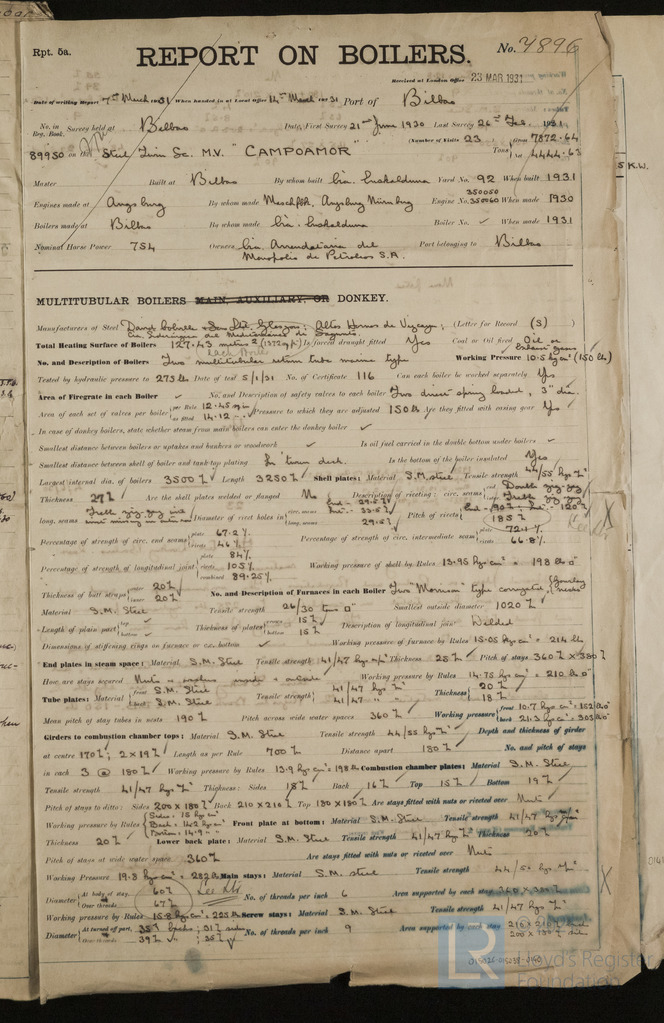 Rpt. 5a.
REPORT ON BOILERS.
No. 4896
Received at London Office 23 MAR 1931
Date of writing Report 7th March 1931 When handed in at Local Office 14th March 1931 Port of Bilbao
No. in Reg. Book. Survey held at Bilbao Date, First Survey 21st June 1930 Last Survey 26th Feb. 1931
(Number of Visits 23) Gross 7872.64
89950 on the Steel Twin Sc. M.V. "CAMPOAMOR" Tons Net 4444.63
Master Built at Bilbao By whom built Cia. Euskalduna Yard No. 92 When built 1931
Engines made at Augsburg By whom made Maschfbk. Augsburg Nürnberg Engine No. 350050 350060 When made 1930
Boilers made at Bilbao By whom made Cia. Euskalduna Boiler No. ✓ When made 1931
Nominal Horse Power 754 Owners Cia. Arrendataria del Monopolio de Petroleos S.A. Port belonging to Bilbao
MULTITUBULAR BOILERS MAIN, AUXILIARY, OR DONKEY.
Manufacturers of Steel David Colville & Sons Ltd. Glasgow; Altos Hornos de Vizcaya; (Letter for Record (S))
Cia Siderurgica del Mediterraneo de Sagunto.
Total Heating Surface of Boilers 127.43 metres 2 (1372 sq ft) Is forced draught fitted Yes Coal or Oil fired Oil or Exhaust Gases
each Boiler
No. and Description of Boilers Two multitubular return tube marine type Working Pressure 10.5 kg cm² (150 lbs)
Tested by hydraulic pressure to 275 lbs Date of test 5/1/31 No. of Certificate 116 Can each boiler be worked separately Yes
Area of Firegrate in each Boiler ✓ No. and Description of safety valves to each boiler Two direct spring loaded, 3" dia.
Area of each set of valves per boiler per Rule 12.45 as fitted 14.12 Pressure to which they are adjusted 150 lbs Are they fitted with easing gear Yes
In case of donkey boilers, state whether steam from main boilers can enter the donkey boiler ✓
Smallest distance between boilers or uptakes and bunkers or woodwork ✓ Is oil fuel carried in the double bottom under boilers ✓
Smallest distance between shell of boiler and tank top plating In tween deck. Is the bottom of the boiler insulated Yes
Largest internal dia. of boilers 3500 Length 3250 Shell plates: Material S.M. Steel Tensile strength 44/55 kgs
Thickness 27 Are the shall plates welded or flanged No Description of riveting: circ. seams end Double zig-zag
long. seams Diameter of rivet holes in circ. seams long. seams 29.5 Pitch of rivets 185
Percentage of strength of circ. end seams plate 67.2% rivets 46% Percentage of strength of circ. intermediate seam plate 72.1% rivets 66.8%
Percentage of strength of longitudinal joint plate 84% rivets 105% combined 89.25% Working pressure of shell by Rules 13.95 kgs cm² = 198 lbs
Thickness of butt straps outer 20 inner 20 No. and Description of Furnaces in each Boiler Two "Morrison" type corrugated
Material S.M. Steel Tensile strength 26/30 tons Smallest outside diameter 1020
Length of plain part top bottom Thickness of plates 15 15 Description of longitudinal joint Welded
Dimensions of stiffening rings on furnace or c.c. bottom ✓ Working pressure of furnace by Rules 15.05 kgs cm² = 214 lbs
End plates in steam space: Material S.M. Steel Tensile strength 41/47 kgs Thickness 25 Pitch of stays 360 × 380
How are stays secured Nuts & washers inside & outside Working pressure by Rules 14.75 kgs cm² = 210 lbs
Tube plates: Material front S.M. Steel back S.M. Steel Tensile strength 41/47 kgs 41/47 " Thickness 20 18
Mean pitch of stay tubes in nests 190 Pitch across wide water spaces 360 Working pressure front 10.7 kgs cm² = 152 lbs back 21.3 kgs cm² = 303 lbs
Girders to combustion chamber tops: Material S.M. Steel Tensile strength 44/55 kgs Depth and thickness of girder
at centre 170; 2 × 19 Length as per Rule 700 Distance apart 180 No. and pitch of stays
in each 3 @ 180 Working pressure by Rules 13.9 kgs cm² = 198 lbs Combustion chamber plates: Material S.M. Steel
Tensile strength 41/47 kgs Thickness: Sides 18 Back 16 Top 15 Bottom 19
Pitch of stays to ditto: Sides 200 × 180 Back 210 × 210 Top 180 × 180 Are stays fitted with nuts or riveted over Nuts
Working pressure by Rules Sides: 15 kgs cm² Front plate at bottom: Material S.M. Steel Tensile strength 41/47 kgs
Thickness 20 Lower back plate: Material S.M. Steel Tensile strength 41/47 kgs Thickness 20
Pitch of stays at wide water space 360 Are stays fitted with nuts or riveted over Nuts
Working Pressure 19.8 kgs cm² = 282 lbs Main stays: Material S.M. Steel Tensile strength 44/50 kgs
Diameter At body of stay, 60 Over threads 67 No. of threads per inch 6 Area supported by each stay 360 × 380
Working pressure by Rules 15.8 kgs cm² = 225 lbs Screw stays: Material S.M. Steel Tensile strength 41/47 kgs
Diameter At turned off part, 35 backs; 31 sides Over threads 39 ; 35 No. of threads per inch 9 Area supported by each stay 210 × 210 200 × 180
015026-015035-0140
LR
© Lloyd's Register Foundation